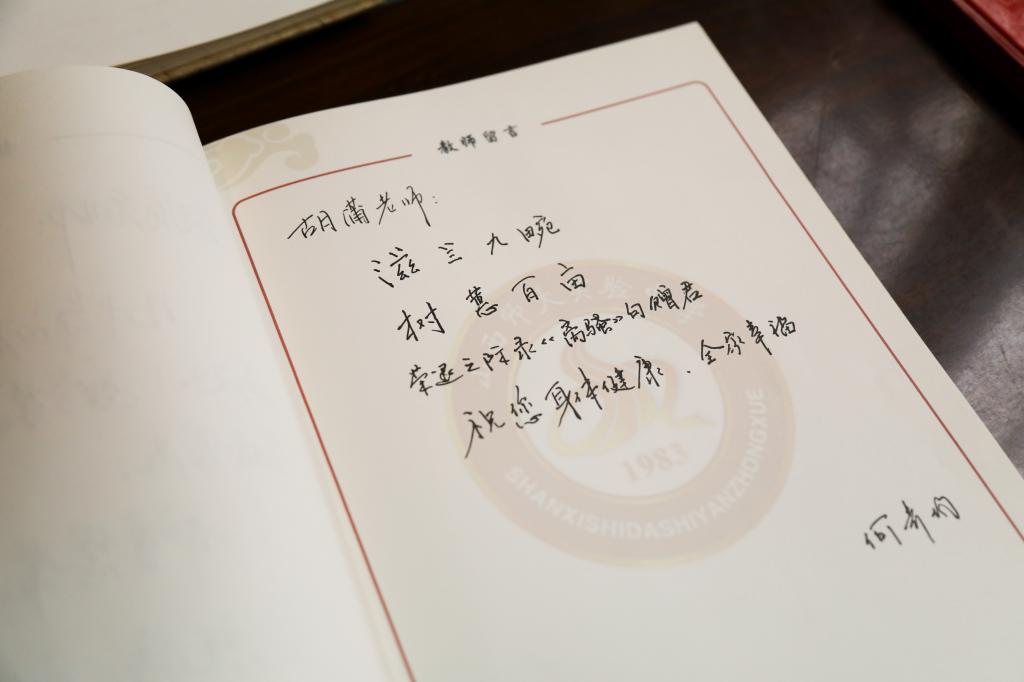 教师留言
胡蒲老师:
滋兰九畹
树蕙百亩
荣退之际录《离骚》句赠君
祝您身体健康.全家幸福
师大实验
1983
SHANXISHIDASHIYANZHONGXUE